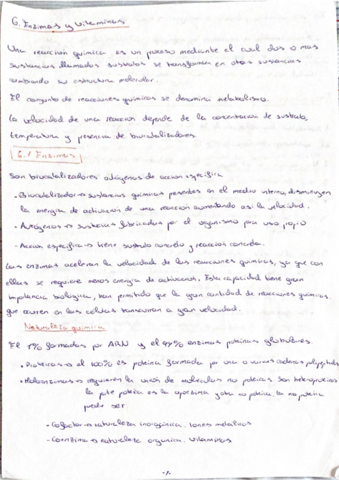 6. Enzimas y vitaminas
Una reacción química es un proceso mediante el cual dos o mas
sustancias llamadas sustratos se transforman en otras sustancias
cambiando su estructura molecular.
El conjunto de reacciones químicas se denomina metabolismo.
La velocidad de una reacción depende de la concentración de sustrato,
temperatura y presencia de biocatalizadores.
6.1 Enzimas
Son biocatalizadores autógenos de acción específica
· Biocatalizador → sustancias químicas presentes en el medio interno, disminuyen
la energia de activación de una reacción aumentando así la velocidad.
· Autógenos → sustancias fabricadas por el organismo para uso propio
· Acción específica → tiene sustrato concreto y reacción concreta.
Las enzimas aceleran la velocidad de las reacciones químicas, ya que con
ellas se requiere menos energia de activación. Esta capacidad tiene gran
importancia biológica, han permitido que la gran cantidad de reacciones químicas
que ocurren en las células transcurran a gran velocidad.
Naturaleza química
El 1% formadas por ARN y el 99% enzimas proteínas globulares.
· Proteicas → el 100% es proteína formada por una o varias cadenas polipeptídic
· Holoenzimas → requieren la unión de moléculas no proteicas. Son heteroproteínas
la parte proteica es la apoenzima y otra no proteica. La no proteica
puede ser:
- Cofactor → naturaleza inorgánica. Iones metálicos
- Coenzima → naturaleza orgánica. Vitaminas